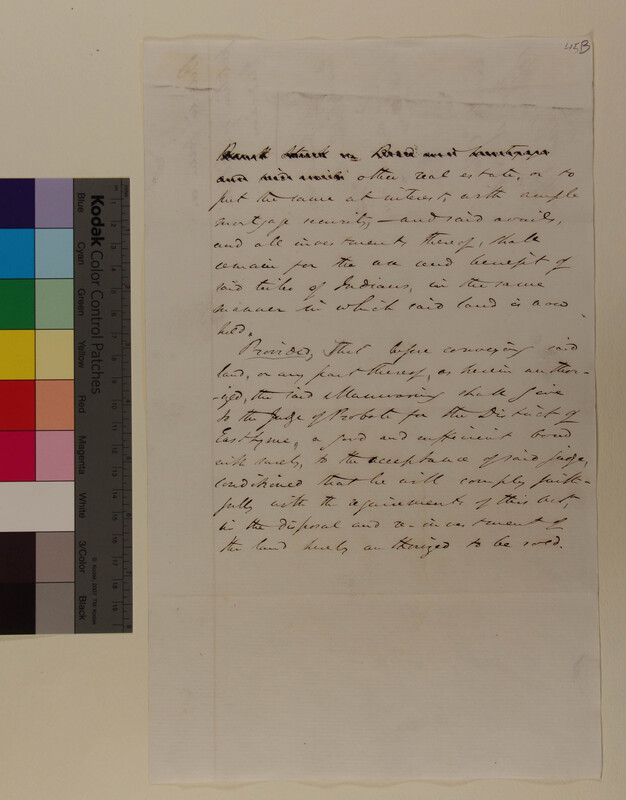 45B
Bank Stock or Bond and mortgage
and said avails other real estate, or to
put the same at interest, with ample
mortgage security,—and said avails,
and all investments thereof, shall
remain for the use and benefit of
said tribe of Indians, in the same
manner in which said land is now
held.
Provided, That before conveying said
land, or any part thereof, as herein author-
-ized, the said Manwaring shall give
to the Judge of Probate for the District of
East Lyme, a good and sufficient bond
with surety, to the acceptance of said judge,
conditioned that he will comply faith-
fully with the requirements of this act,
in the disposal and re-investment of
the land hereby authorized to be sold.
Kodak
Color Control Patches
Blue
Cyan
Green
Yellow
Red
Magenta
White
3/Color
Black
© Kodak, 2007 TM: Kodak